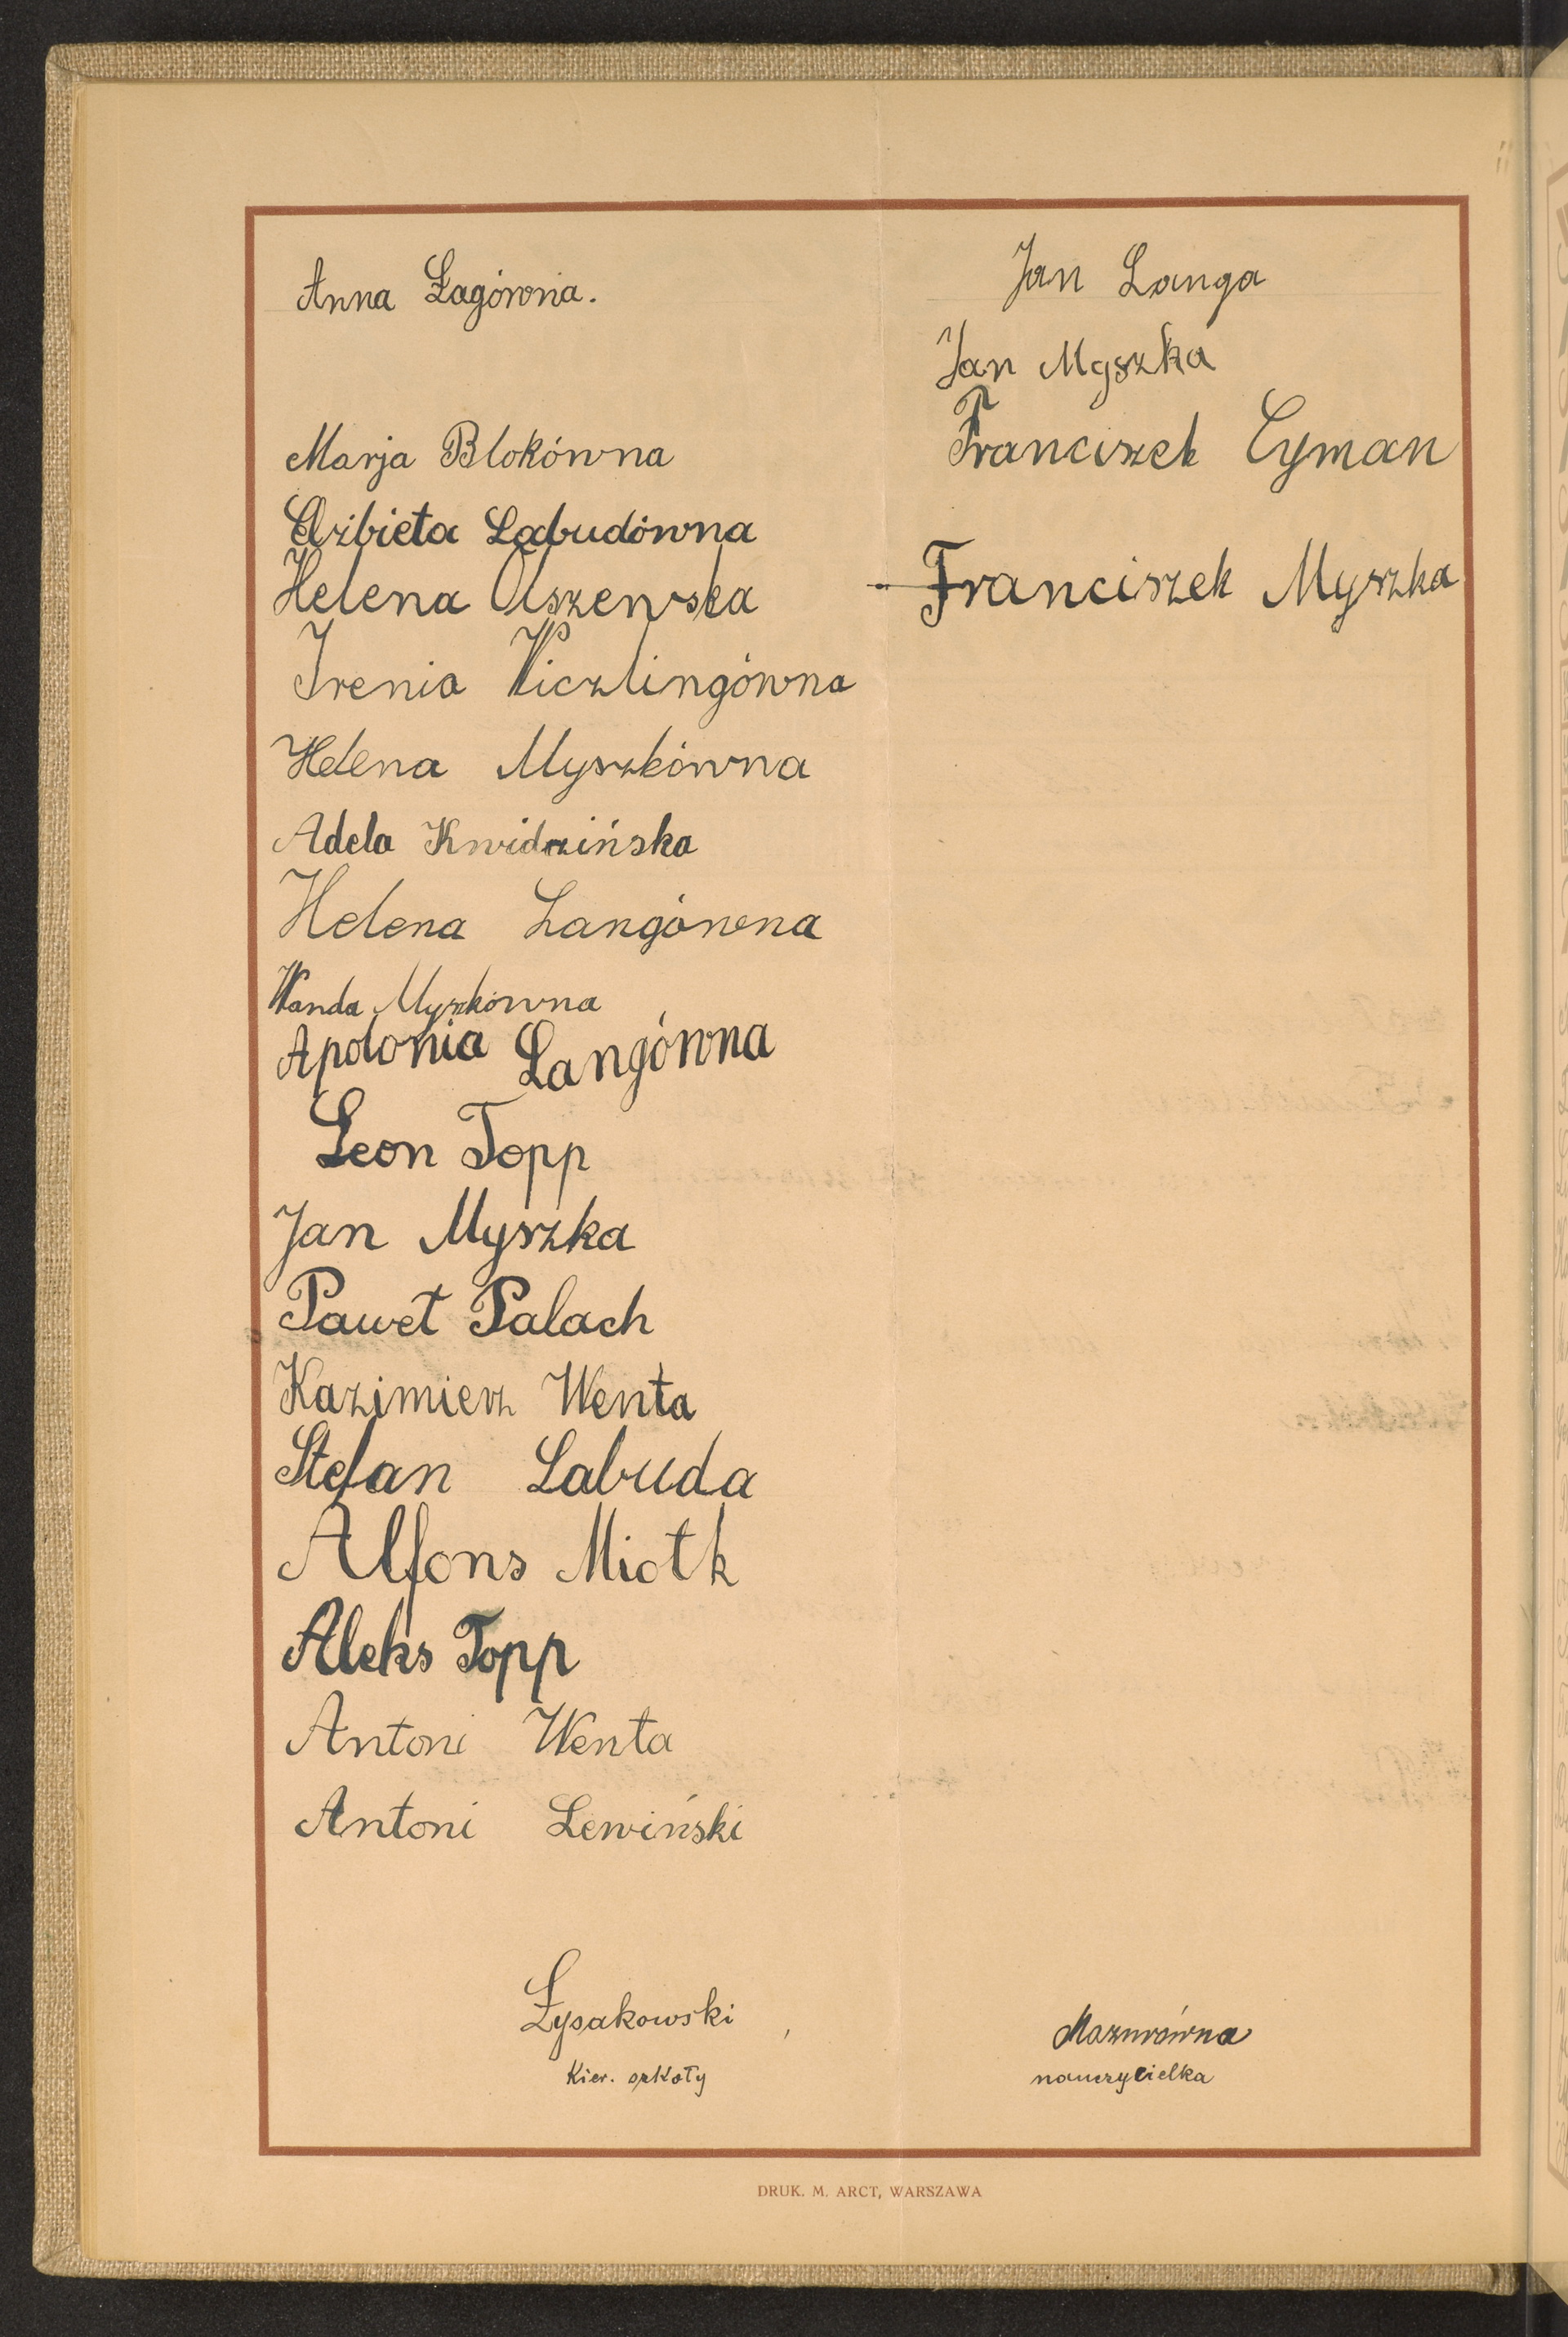 Anna Łagówna.
Marja Blokówna
Elżbieta Labudówna
Helena Olszewska
Irenia Wiczlingówna
Helena Myszkówna
Adela Kwidzińska
Helena Langówna
Wanda Myszkówna
Apolonia Langówna
Leon Topp
Jan Myszka
Paweł Palach
Kazimierz Wenta
Stefan Labuda
Alfons Miotk
Aleks Topp
Antoni Wenta
Antoni Lewiński
Jan Langa
Jan Myszka
Franciszek Cyman
Franciszek Myszka
Łysakowski
Kier. szkoły
Mazurówna
nauczycielka
DRUK. M. ARCT, WARSZAWA